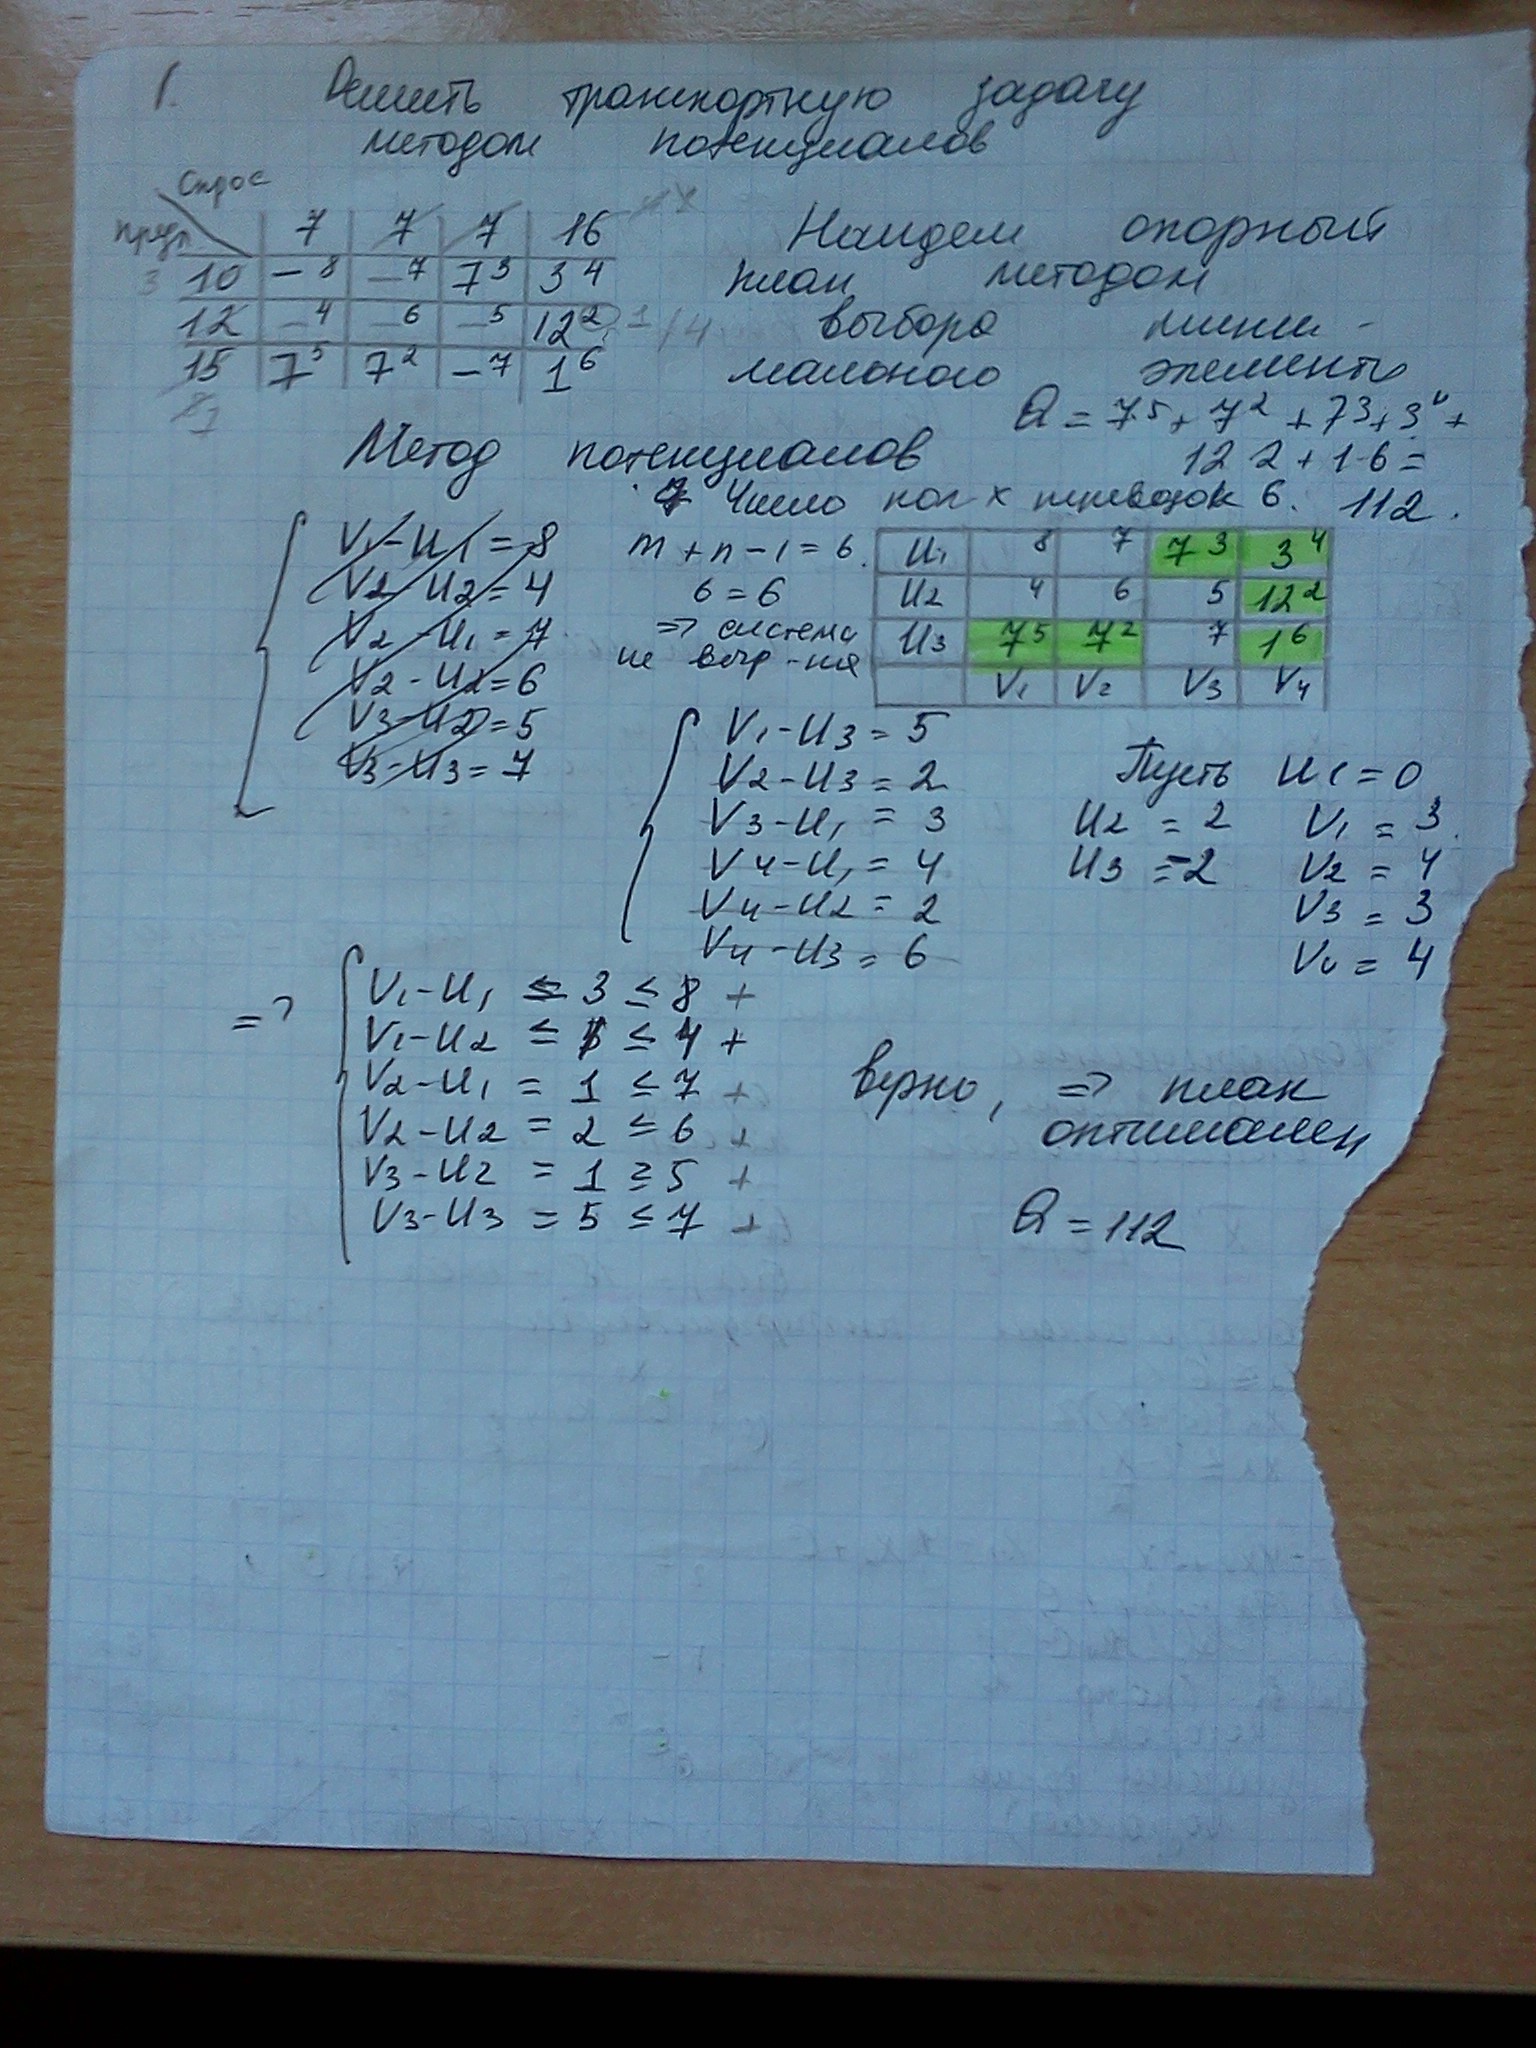 1. Решить транспортную задачу
методом потенциалов
Спрос
предл 7 7 7 16
3 10 –8 –7 7 3 3 4
12 –4 –6 –5 12 2
15 7 5 7 2 –7 1 6
Найдем опорный
план методом
выбора мини-
мального элемента
Q = 7 5 + 7 2 + 7 3 + 3 4 +
12 2 + 1·6 =
112.
Метод потенциалов
Число пол-х перевозок 6.
m + n – 1 = 6.
6 = 6
=> система
не выр-ная
V1 – U1 = 8
V2 – U2 = 4
V2 – U1 = 7
V2 – U2 = 6
V3 – U2 = 5
V3 – U3 = 7
U1 8 7 7 3 3 4
U2 4 6 5 12 2
U3 7 5 7 2 7 1 6
V1 V2 V3 V4
V1 – U3 = 5
V2 – U3 = 2
V3 – U1 = 3
V4 – U1 = 4
V4 – U2 = 2
V4 – U3 = 6
Пусть U1 = 0
U2 = 2 V1 = 3.
U3 = -2 V2 = 4
V3 = 3
V4 = 4
=> V1 – U1 ≤ 3 ≤ 8 +
V1 – U2 ≤ 1 ≤ 4 +
V2 – U1 = 1 ≤ 7 +
V2 – U2 = 2 ≤ 6 +
V3 – U2 = 1 ≥ 5 +
V3 – U3 = 5 ≤ 7 +
верно, => план
оптимален
Q = 112